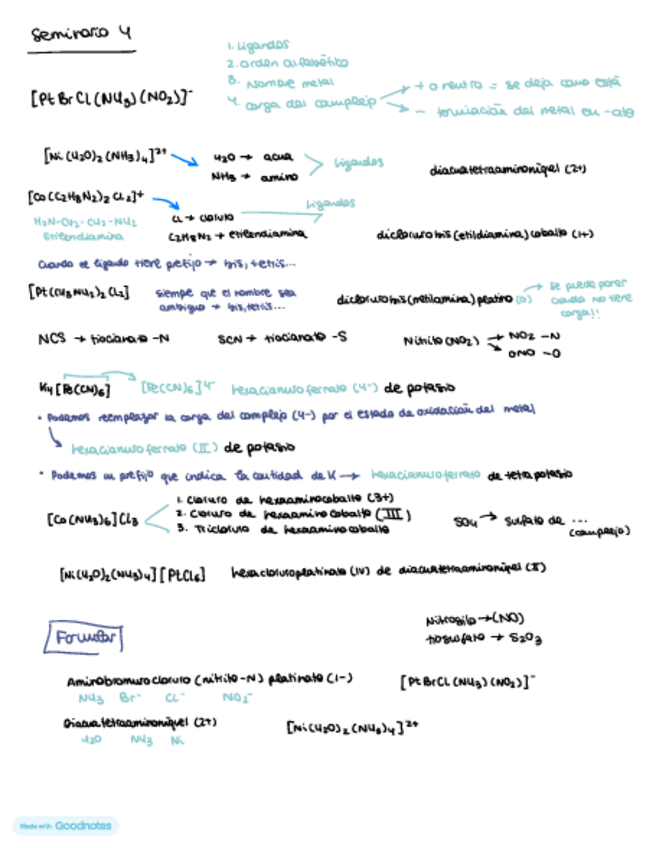 Seminario 4
1. Ligandos
2. orden alfabético
3. Nombre metal
4. carga del complejo → + o neutro = se deja como está
→ - terminación del metal en -ato
[PtBrCl(NH3)(NO2)]⁻
[Ni(H2O)2(NH3)4]²⁺ H2O → acua
NH3 → amino
Ligandos
diacuatetraaminoníquel (2+)
[Co(C2H8N2)2Cl2]⁺ Cl → cloruro
Ligandos
H2N-CH2-CH2-NH2
Etilendiamina
C2H8N2 → etilendiamina
dicloruro bis(etildiamina)cobalto (1+)
Cuando el ligando tiene prefijo → bis, tetris...
[Pt(CH3NH2)2Cl2] siempre que el nombre sea
ambiguo → bis, tetris...
dicloruro bis(metilamina)platino (0) → se puede poner
cuando no tiene
carga!!
NCS → tiocianato -N SCN → tiocianato -S Nitrito (NO2) → NO2 -N
→ ONO -O
K4[Fe(CN)6] [Fe(CN)6]⁴⁻ hexacianuroferrato (4-) de potasio
• Podemos reemplazar la carga del complejo (4-) por el estado de oxidación del metal
hexacianuroferrato (II) de potasio
• Podemos un prefijo que indica la cantidad de K → hexacianuroferrato de tetrapotasio
[Co(NH3)6]Cl3
1. Cloruro de hexaaminocobalto (3+)
2. Cloruro de hexaaminocobalto (III)
3. Tricloruro de hexaaminocobalto
SO4 → sulfato de ...
(complejo)
[Ni(H2O)2(NH3)4][PtCl6] hexacloruroplatinato (IV) de diacuatetraaminoníquel (II)
Nitrosilo → (NO)
tiosulfato → S2O3
Formular
Aminobromurocloruro (nitrito-N) platinato (1-) [PtBrCl(NH3)(NO2)]⁻
NH3 Br⁻ Cl⁻ NO2⁻
Diacuatetraaminoníquel (2+) [Ni(H2O)2(NH3)4]²⁺
H2O NH3 Ni
Made with Goodnotes